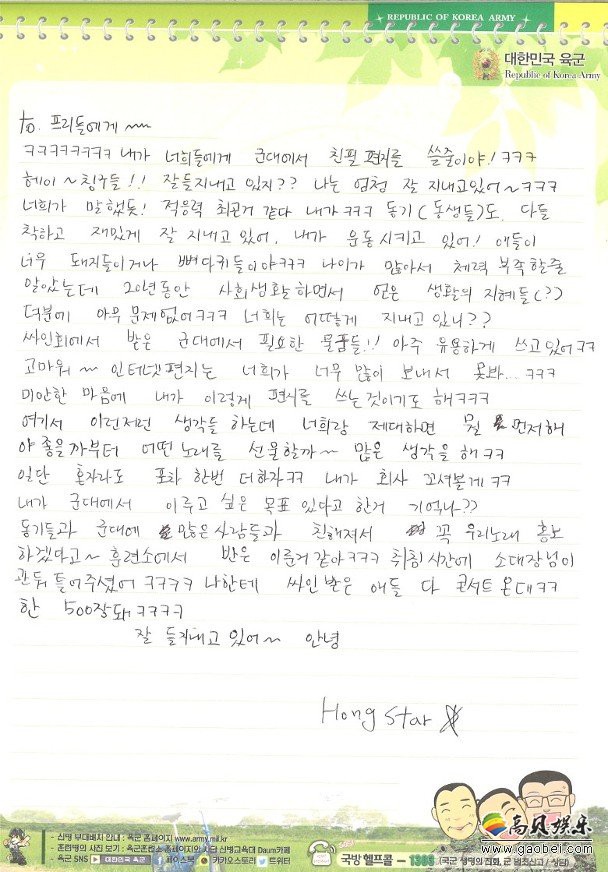 REPUBLIC OF KOREA ARMY
대한민국 육군
Republic of Korea Army
to. 프리들에게 ~~
ㅋㅋㅋㅋㅋㅋㅋㅋ 내가 너희들에게 군대에서 친필 편지를 쓸줄이야! ㅋㅋㅋ
헤이~ 칭구들!! 잘들지내고 있지?? 나는 엄청 잘 지내고있어~ㅋㅋㅋ
너희가 말했듯! 적응력 최곤거 같다 내가 ㅋㅋㅋ 동기(동생들)도 다들
착하고 재밌게 잘 지내고 있어. 내가 운동시키고 있어! 애들이
너무 돼지들이거나 뼈다귀들이야ㅋㅋㅋ 나이가 많아서 체력 부족할줄
알았는데 20년동안 사회생활하면서 얻은 생활의 지혜들(??)
덕분에 아무 문제없어ㅋㅋㅋ 너희는 어떠하게 지내고 있니??
싸인회에서 받은 군대에서 필요한 물품들!! 아주 유용하게 쓰고있어ㅋㅋ
고마워~ 인터넷편지는 너희가 너무 많이 보내서 못봐... ㅋㅋㅋ
미안한 마음에 내가 이렇게 편지를 쓰는것이기도 해ㅋㅋㅋ
여기서 이런저런 생각들 하는데 너희랑 제대하면 뭘 먼저해
야 좋을까부터 어떤노래를 선물할까~ 많은 생각을 해ㅋㅋ
일단 혼자라도 포차 한번 더하자ㅋㅋ 내가 회사 꼬셔볼게 ㅋㅋ
내가 군대에서 이루고 싶은 목표 있다고 한거 기억나??
동기들과 군대에 많은사람들과 친해져서 꼭 우리노래 홍보
하겠다고~ 훈련소에서 반은 이룬거 같아ㅋㅋㅋ 취침시간에 소대장님이
관둬 틀어주셨어 ㅋㅋㅋㅋ 나한테 싸인받은 애들 다 콘서트온대ㅋㅋ
한 500장돼ㅋㅋㅋㅋ
잘 들지내고 있어~ 안녕
Hong Star
- 신병 부대배치 안내 : 육군 홈페이지 www.army.mil.kr
- 훈련병의 사진 보기 : 육군훈련소 홈페이지와 신병교육대 Daum카페
- 육군 SNS 대한민국 육군 페이스북 카카오스토리 트위터
국방헬프콜 - 1303 (국군 생명의 전화, 군 범죄신고 / 상담)
高贝娱乐
www.gaobei.com